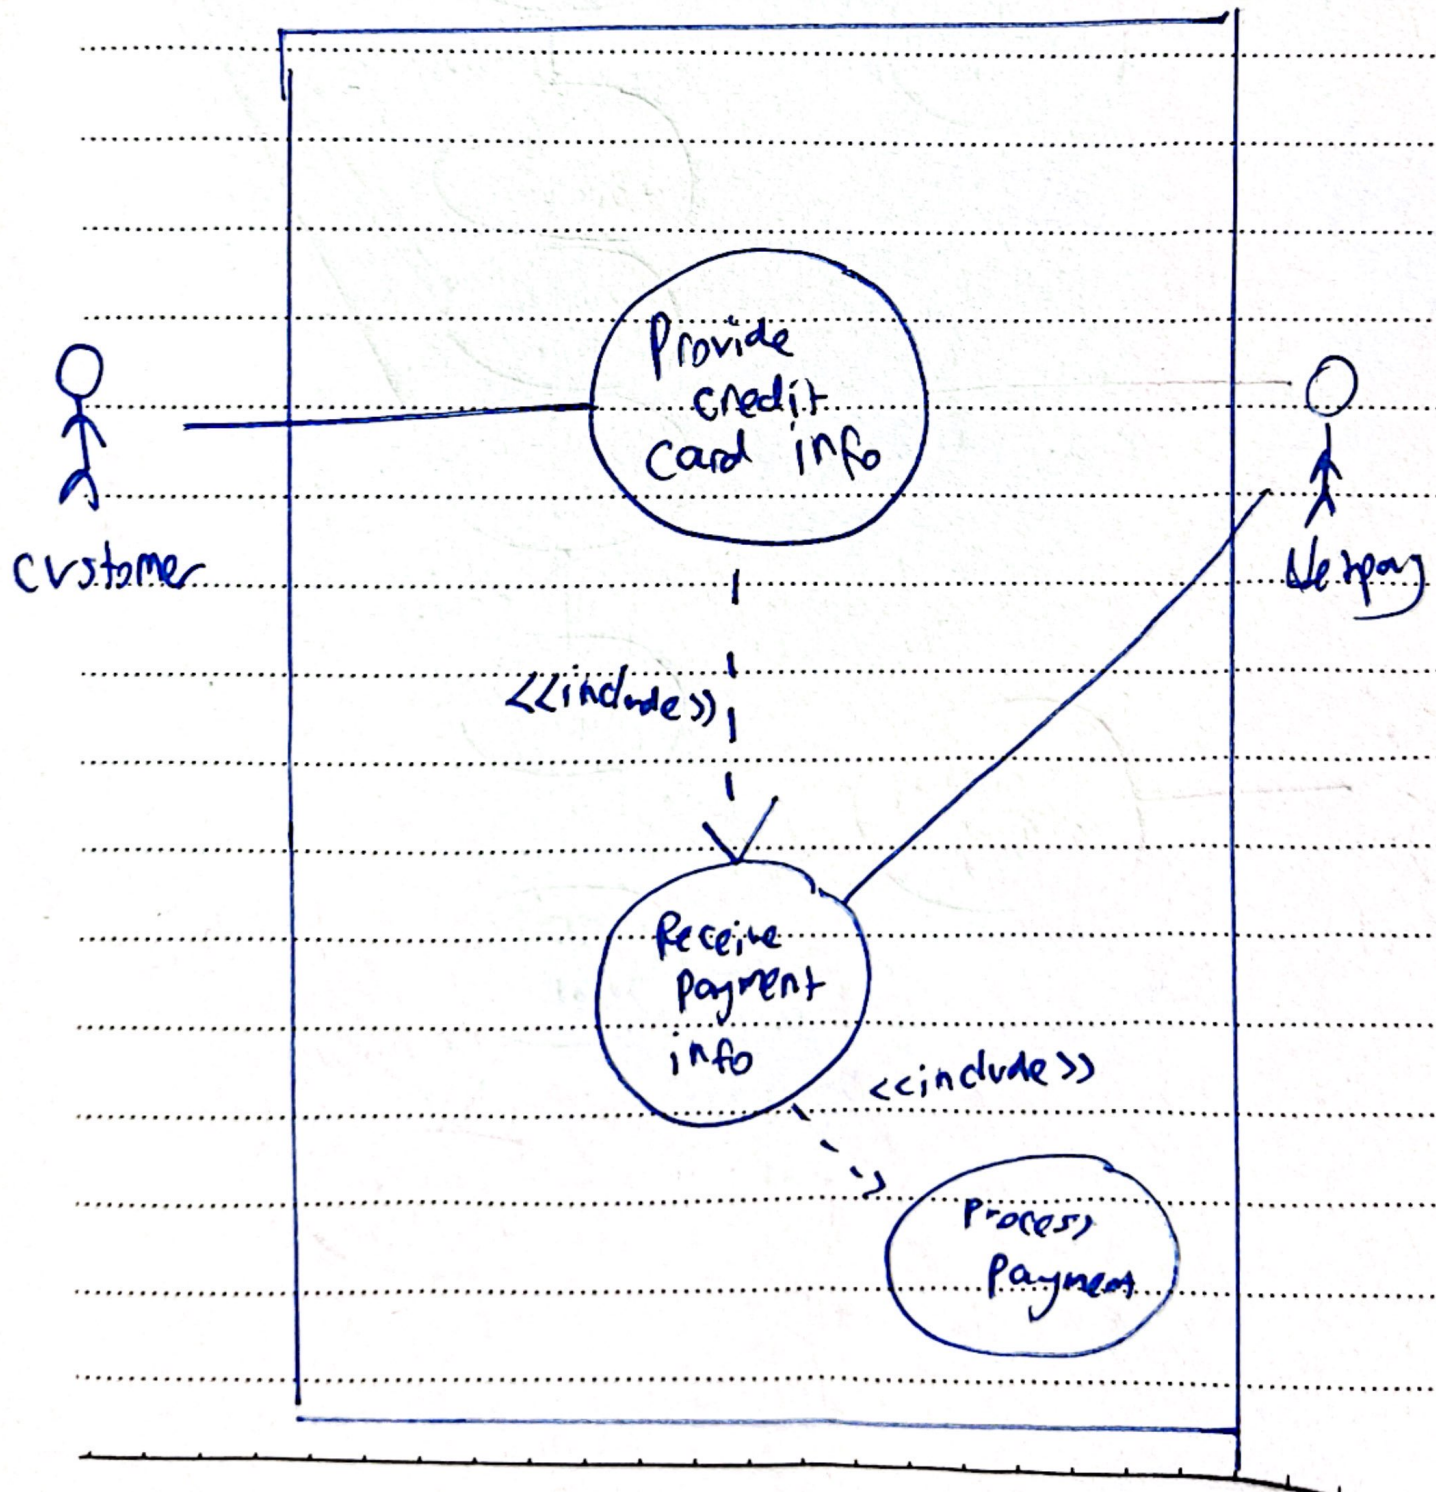 Provide
credit
card info
customer
Netpay
<<include>>
Receive
payment
info
<<include>>
Process
payment